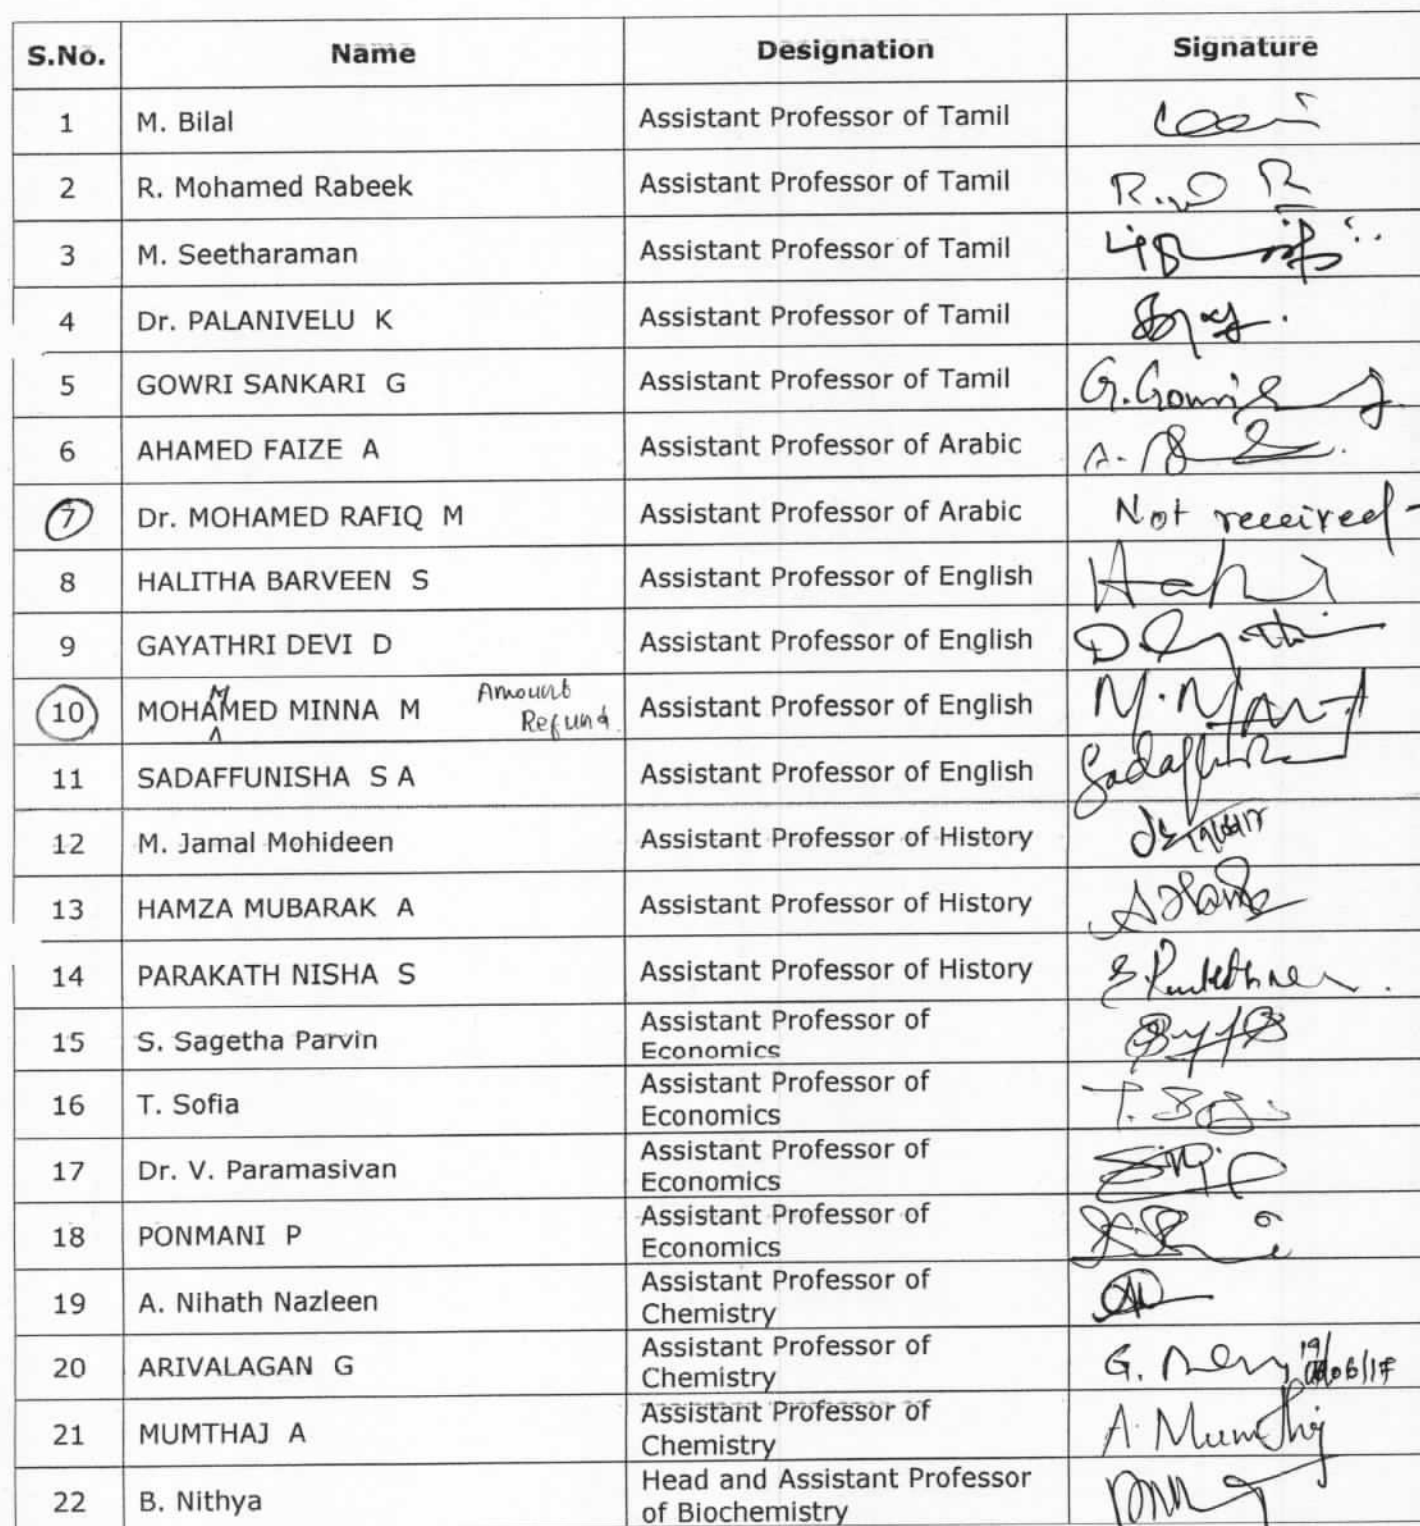 S.No. Name Designation Signature
1 M. Bilal Assistant Professor of Tamil
2 R. Mohamed Rabeek Assistant Professor of Tamil
3 M. Seetharaman Assistant Professor of Tamil
4 Dr. PALANIVELU K Assistant Professor of Tamil
5 GOWRI SANKARI G Assistant Professor of Tamil
6 AHAMED FAIZE A Assistant Professor of Arabic
7 Dr. MOHAMED RAFIQ M Assistant Professor of Arabic Not received
8 HALITHA BARVEEN S Assistant Professor of English
9 GAYATHRI DEVI D Assistant Professor of English
M
Amount
10 MOHAMED MINNA M Refund. Assistant Professor of English
11 SADAFFUNISHA S A Assistant Professor of English
12 M. Jamal Mohideen Assistant Professor of History
13 HAMZA MUBARAK A Assistant Professor of History
14 PARAKATH NISHA S Assistant Professor of History
15 S. Sagetha Parvin Assistant Professor of
Economics
16 T. Sofia Assistant Professor of
Economics
17 Dr. V. Paramasivan Assistant Professor of
Economics
18 PONMANI P Assistant Professor of
Economics
19 A. Nihath Nazleen Assistant Professor of
Chemistry
20 ARIVALAGAN G Assistant Professor of
Chemistry
21 MUMTHAJ A Assistant Professor of
Chemistry A. Mumthaj
22 B. Nithya Head and Assistant Professor
of Biochemistry